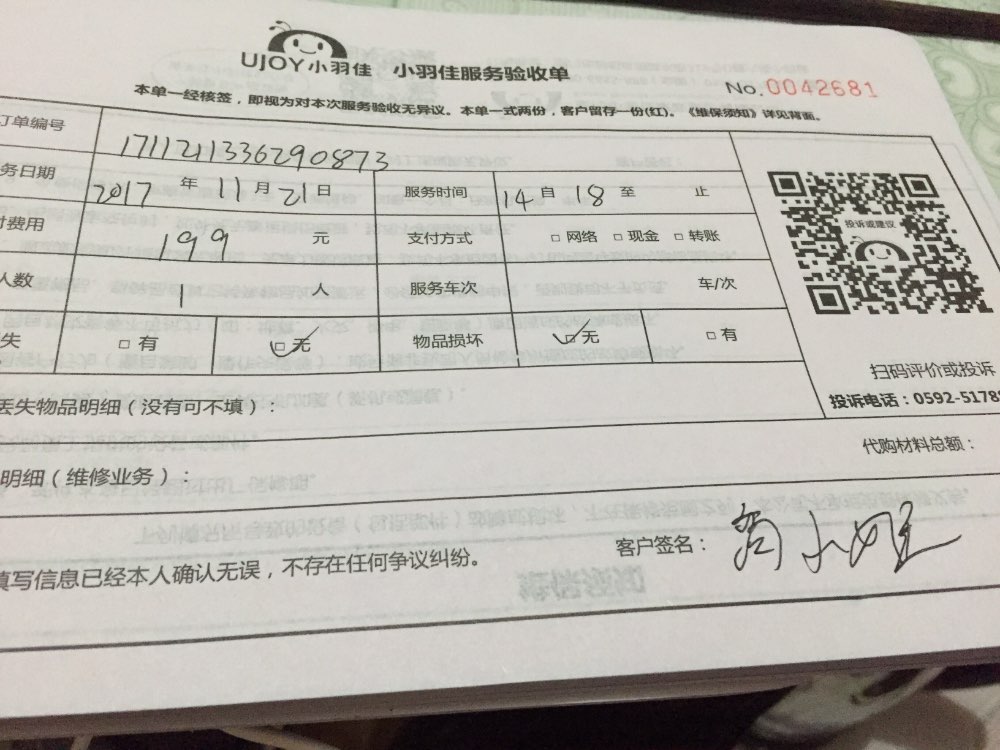 UJOY小羽佳 小羽佳服务验收单
No.0042681
本单一经核签，即视为对本次服务验收无异议。本单一式两份，客户留存一份(红)。《维保须知》详见背面。
订单编号 17112113362908​73
务日期 2017 年 11 月 21 日 服务时间 14 自 18 至 止
付费用 199 元 支付方式 □ 网络 □ 现金 □ 转账
人数 1 人 服务车次 车/次
失 □ 有 □ 无 物品损坏 □ 无 □ 有
投诉或建议
扫码评价或投诉
投诉电话：0592-5178
丢失物品明细（没有可不填）：
代购材料总额：
明细（维修业务）：
客户签名：
填写信息已经本人确认无误，不存在任何争议纠纷。
维保须知